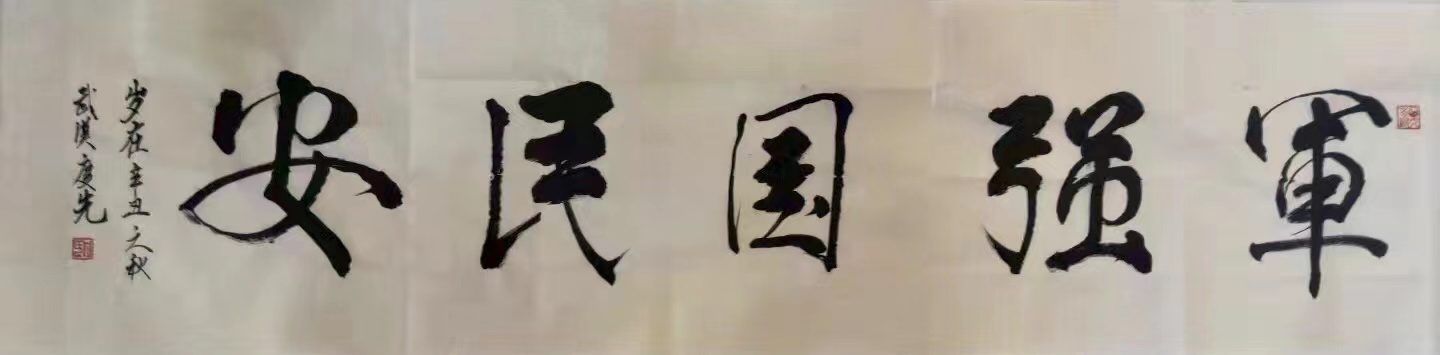 軍强国民安
岁在辛丑之秋
武汉度先